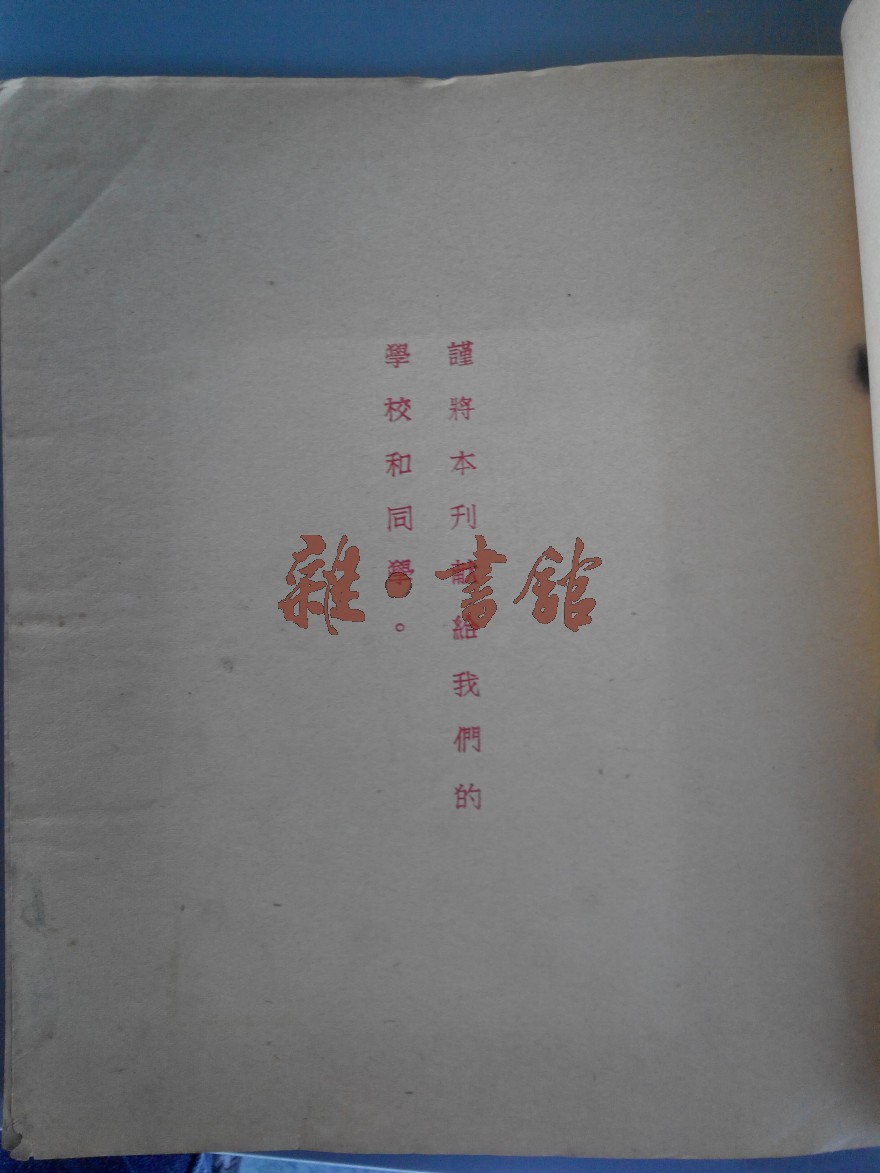 謹將本刊献給我們的
學校和同學。
雜·書館